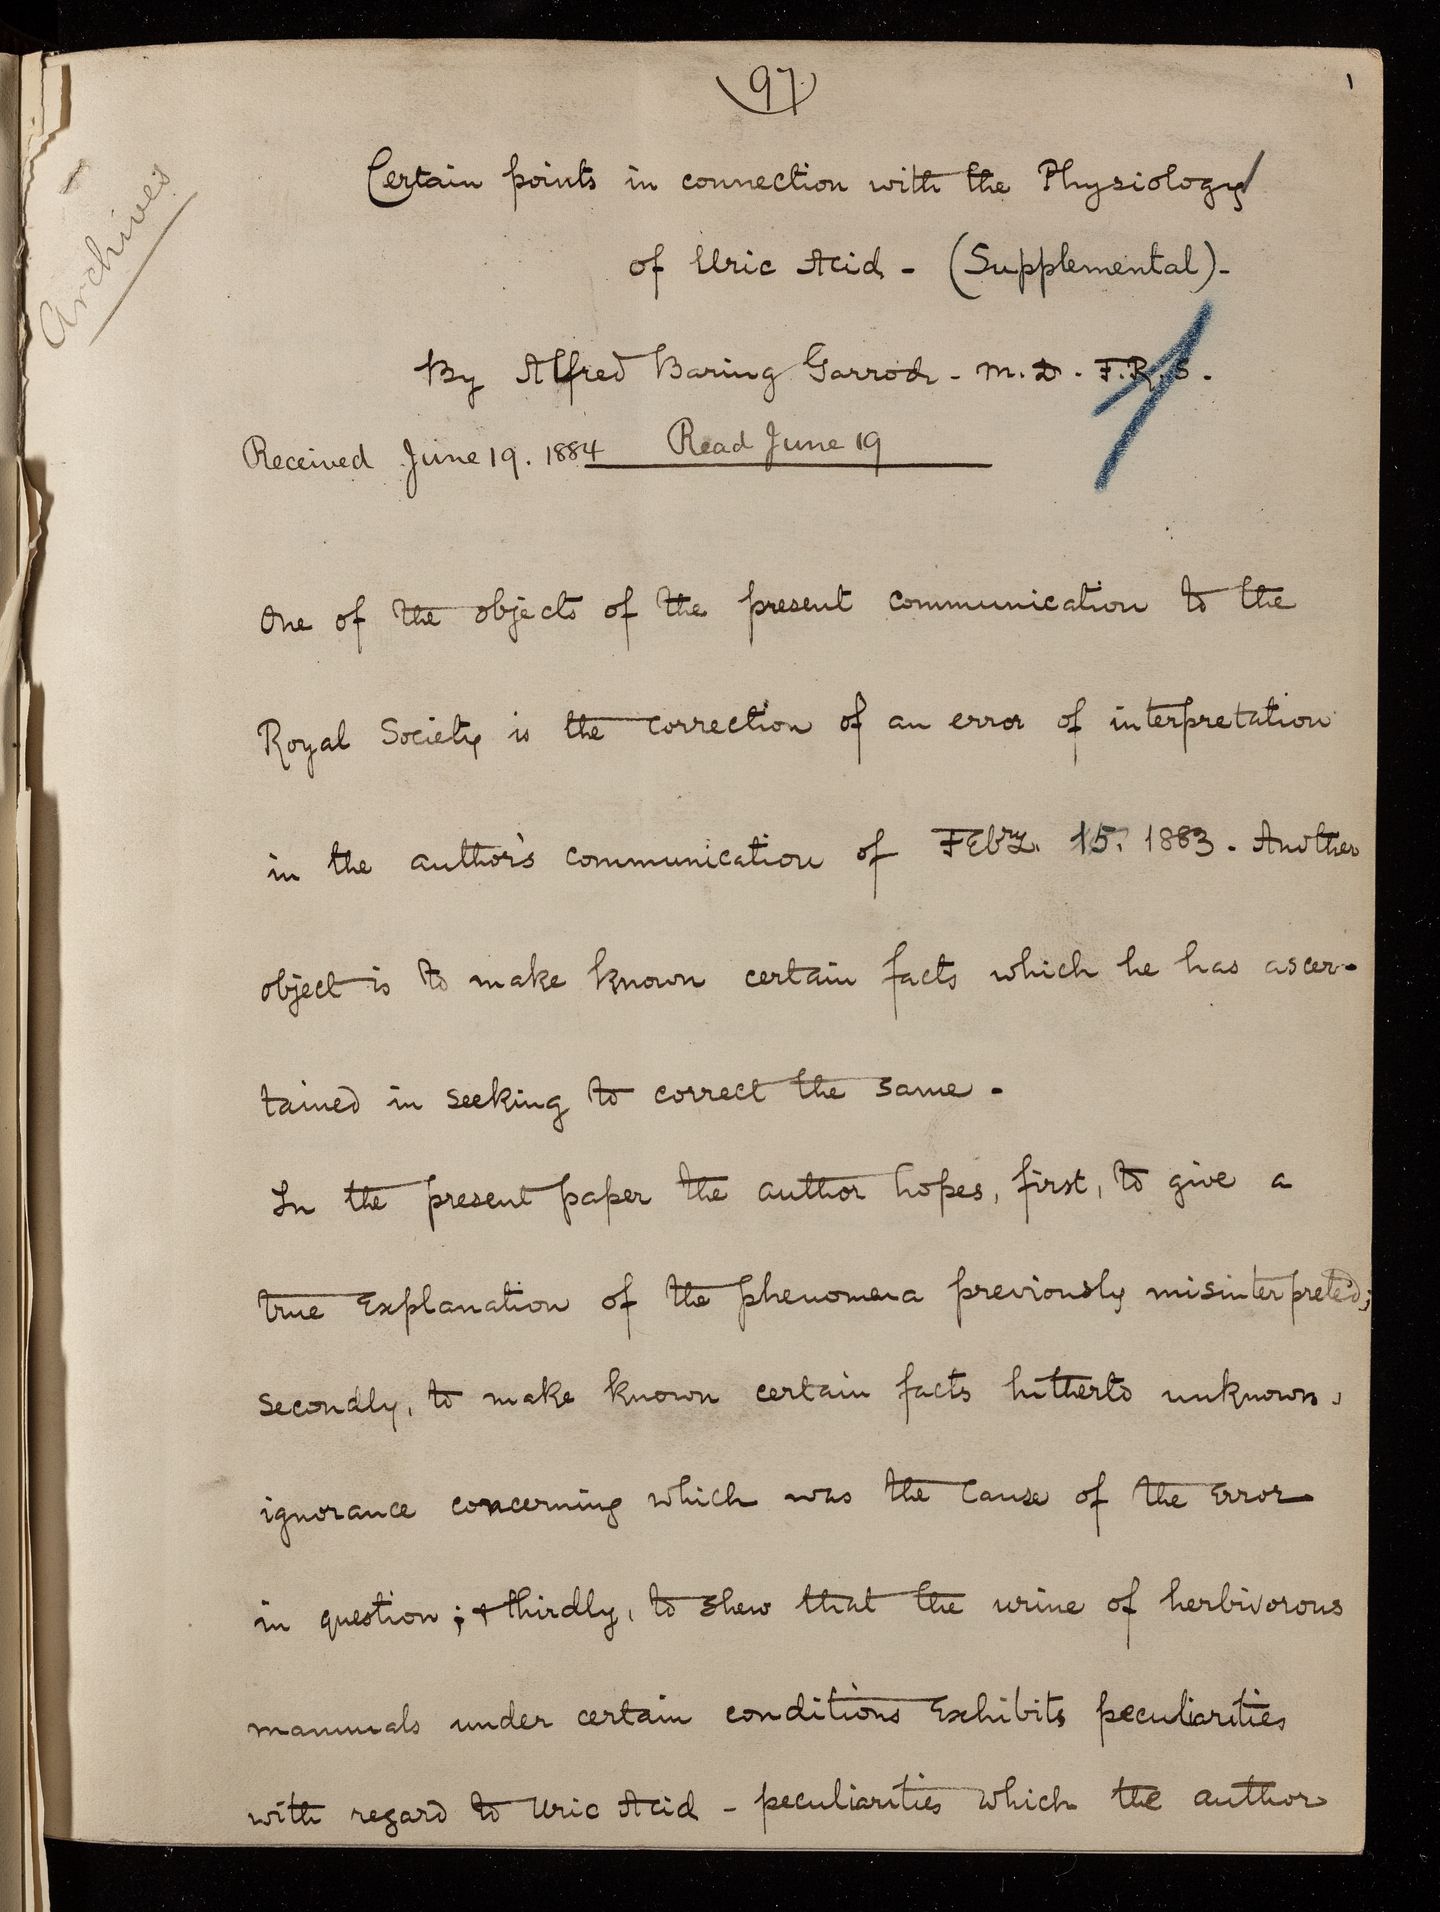 97
1
Archives
Certain points in connection with the Physiology
of Uric Acid - (Supplemental) -
By Alfred Baring Garrod - M.D. F.R.S.
Received June 19. 1884 Read June 19
One of the objects of the present communication to the
Royal Society is the correction of an error of interpretation
in the author's communication of Febry. 15. 1883. Another
object is to make known certain facts which he has ascer-
tained in seeking to correct the same -
In the present paper the author hopes, first, to give a
true Explanation of the phenomena previously misinterpreted;
secondly, to make known certain facts hitherto unknown,
ignorance concerning which was the cause of the Error
in question; & thirdly, to shew that the urine of herbivorous
mammals under certain conditions Exhibits peculiarities
with regard to Uric Acid - peculiarities which the author